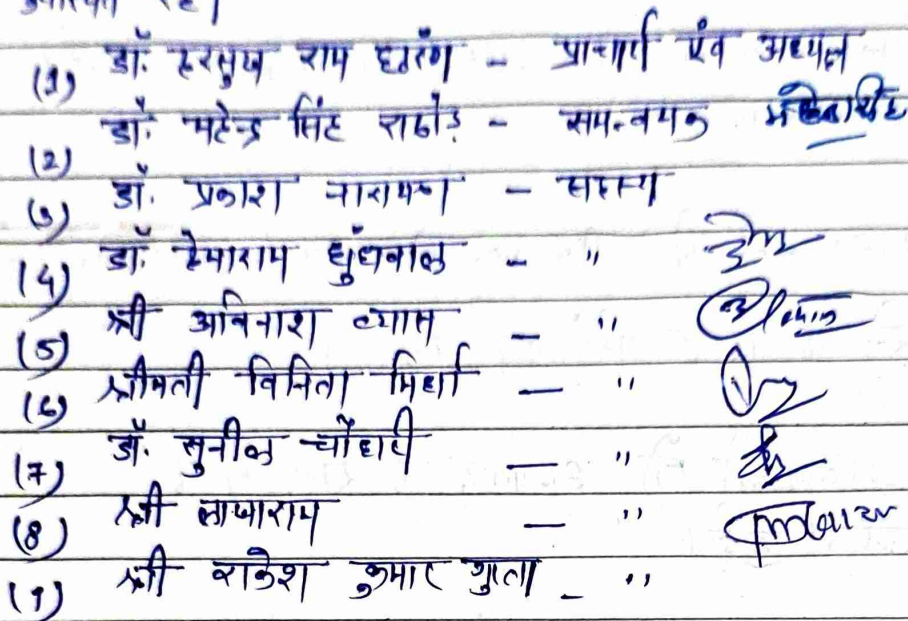 (1) डॉ. हरसुख राम छरंग - प्राचार्य एंव अध्यक्ष
(2) डॉ. महेन्द्र सिंह राठोड़ - समन्वयक
(3) डॉ. प्रकाश नारायण - सदस्य
(4) डॉ. हेमाराम धुंधवाल - "
(5) श्री अविनाश व्यास - "
(6) श्रीमती विनिता मिर्धा - "
(7) डॉ. सुनील चौधरी - "
(8) श्री लाखाराम - "
(9) श्री राकेश कुमार गुप्ता - "